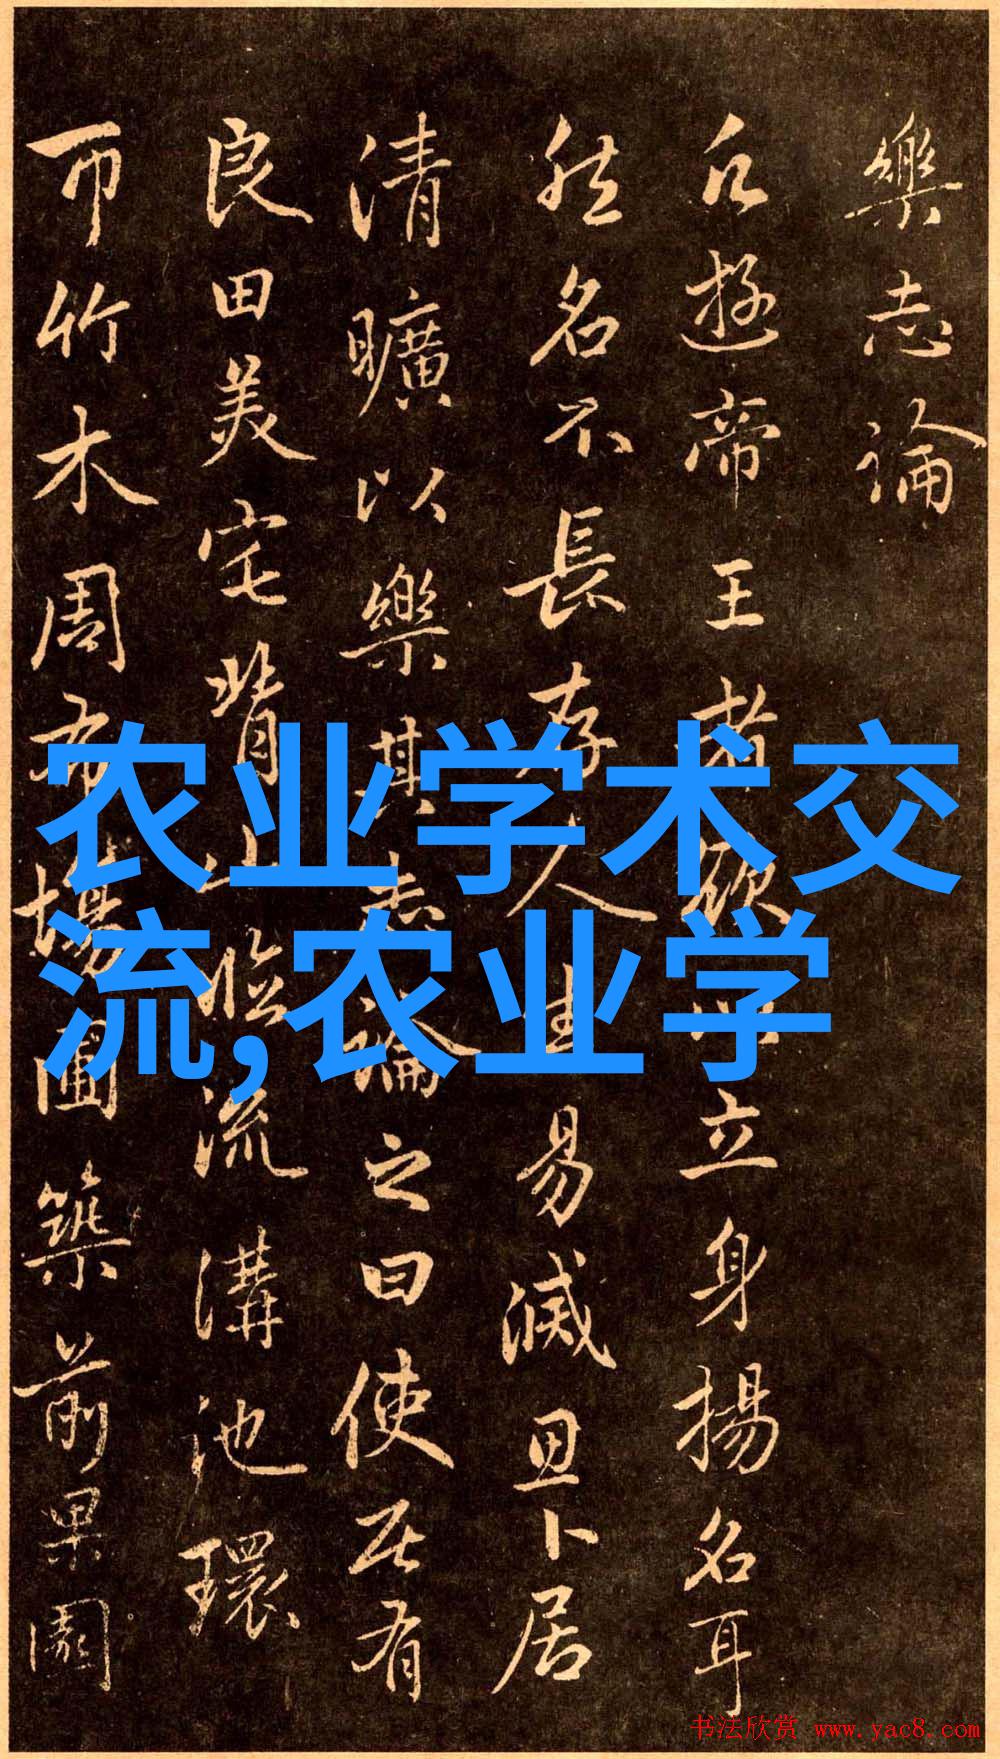 樂志論
凡遊帝王者欲以立身揚名耳
然名不長存人生易滅思卜居
清曠以樂其志論之曰使居有
良田美宅背山臨流溝池環
帀竹木周布場圃築前果園
农业学术交
流,农业学
书法欣赏 www.yac8.com